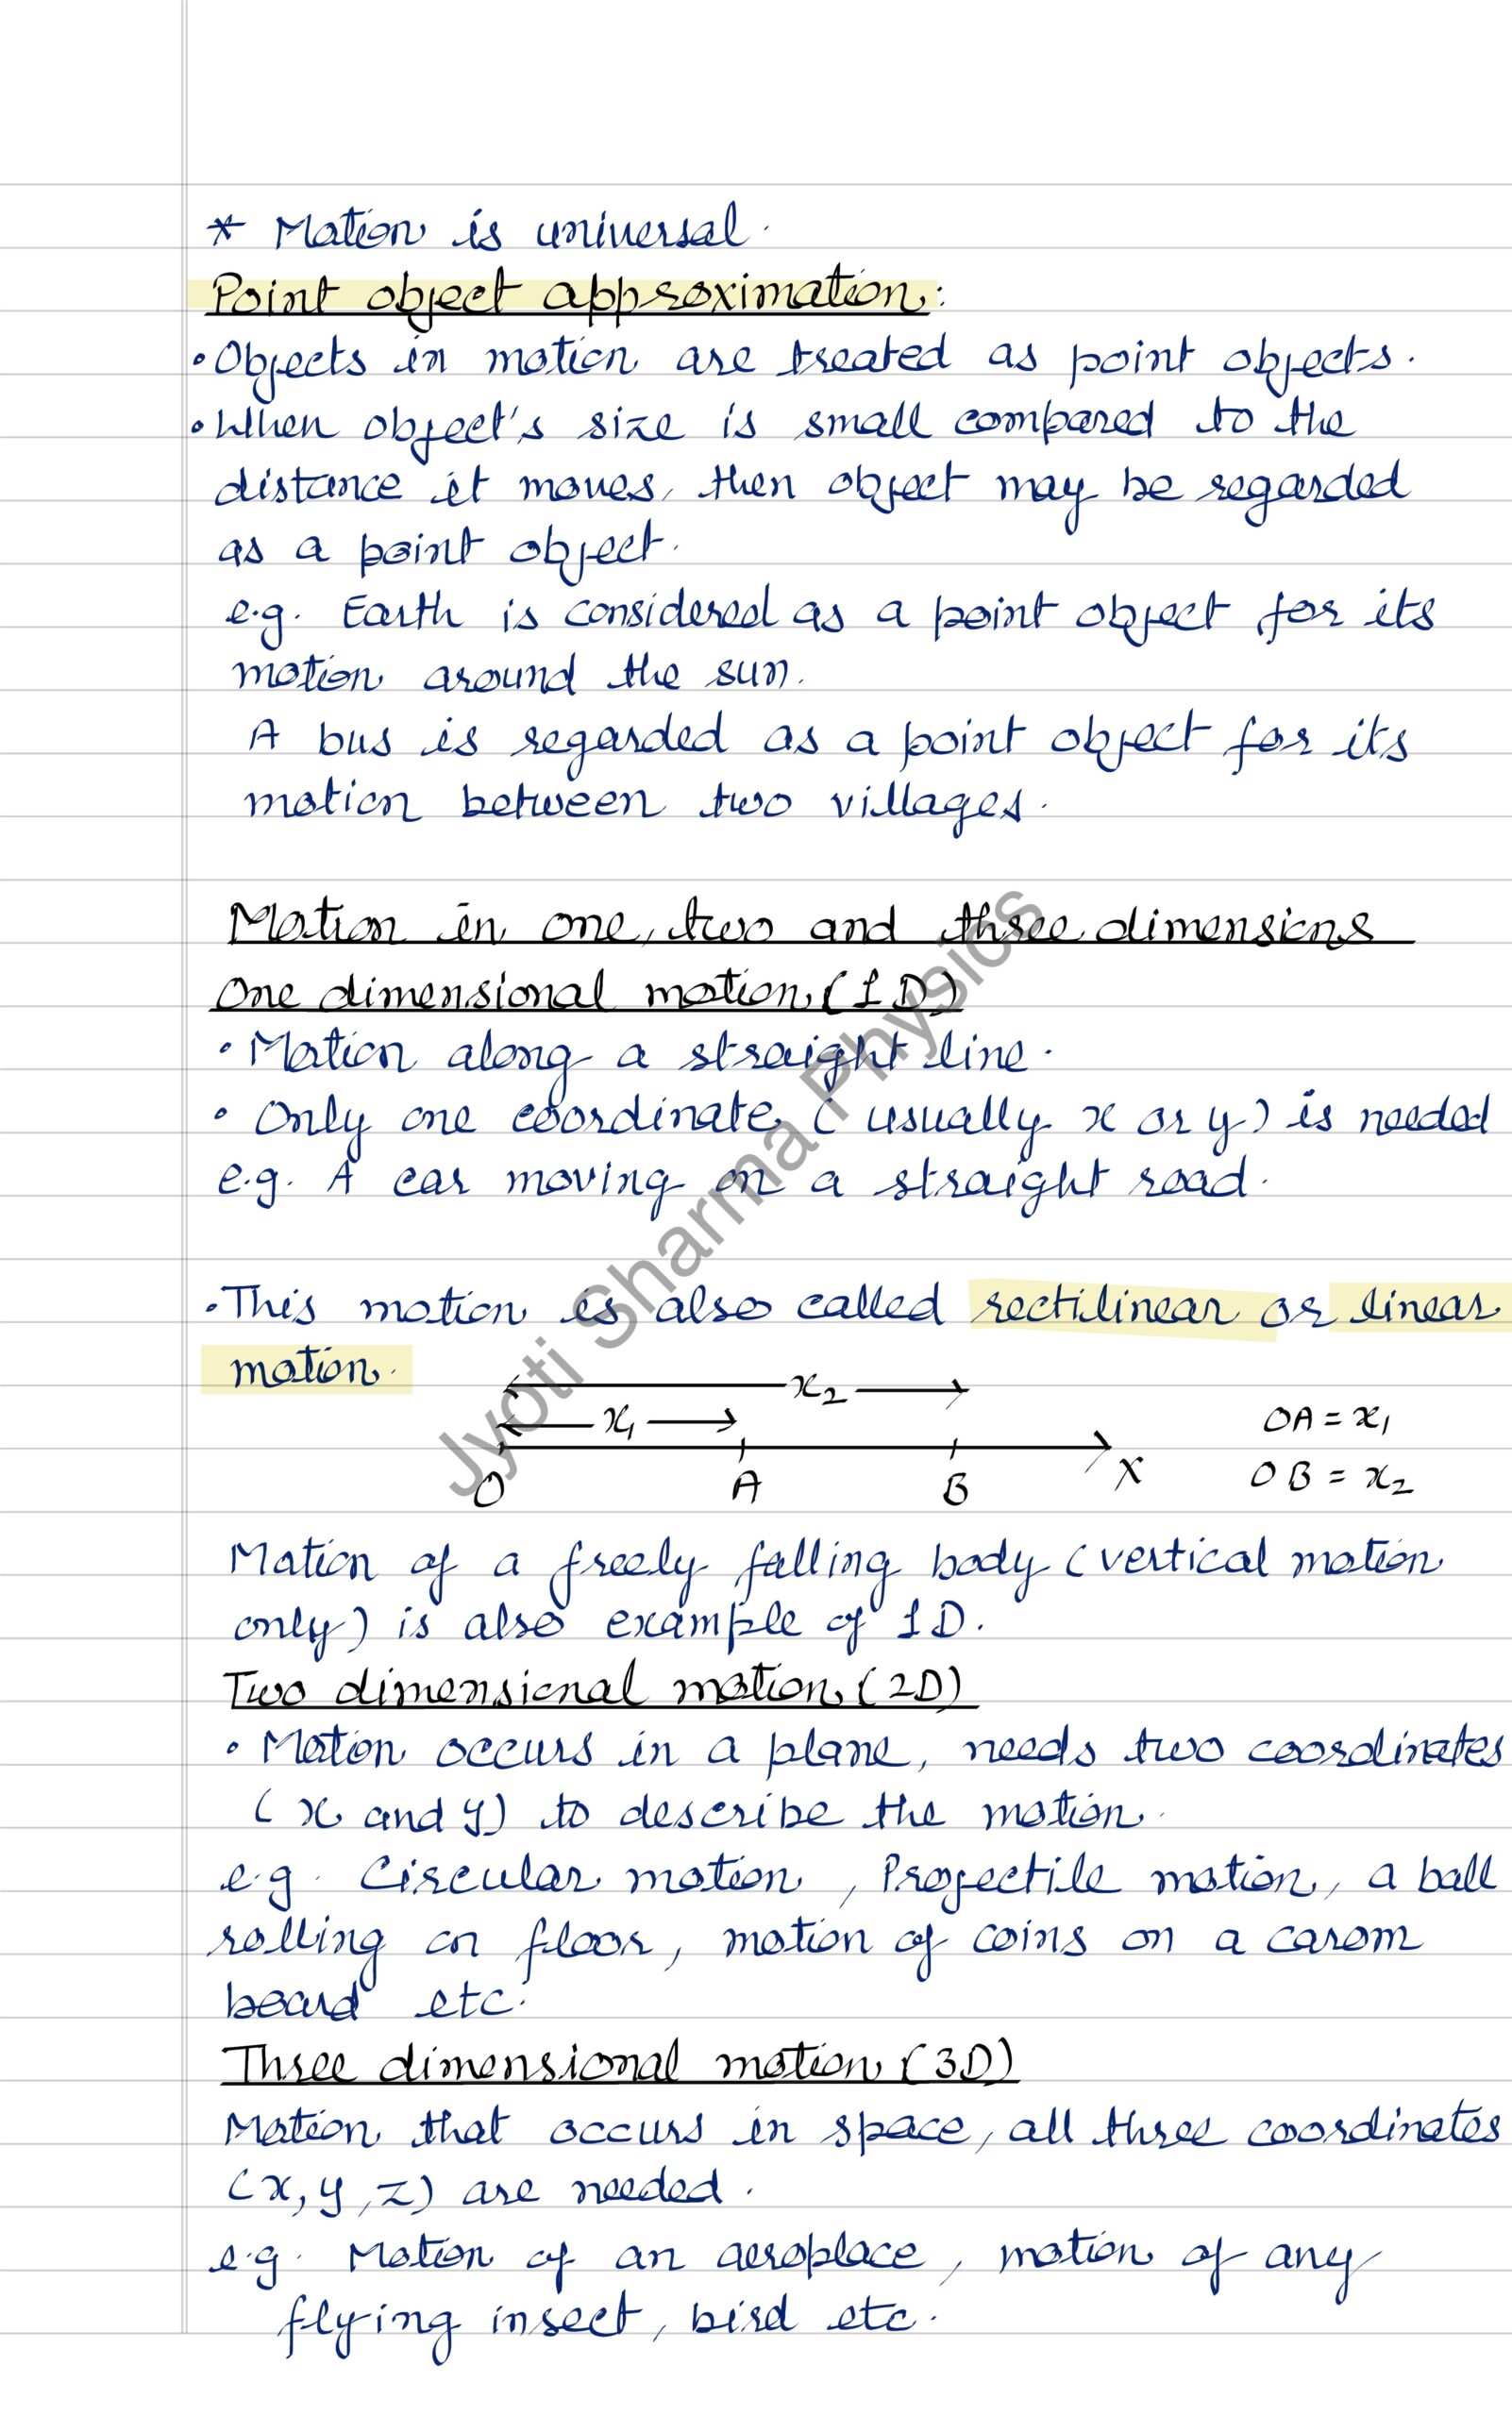 * Motion is universal.
Point object approximation:
• Objects in motion are treated as point objects.
• When object's size is small compared to the
distance it moves, then object may be regarded
as a point object.
e.g. Earth is considered as a point object for its
motion around the sun.
A bus is regarded as a point object for its
motion between two villages.
Motion in one, two and three dimensions
One dimensional motion (1D)
• Motion along a straight line.
• Only one coordinate (usually x or y) is needed
e.g. A car moving on a straight road.
• This motion is also called rectilinear or linear
motion.
x₂
x₁
OA = x₁
O A B X
OB = x₂
Motion of a freely falling body (vertical motion
only) is also example of 1D.
Two dimensional motion (2D)
• Motion occurs in a plane, needs two coordinates
(x and y) to describe the motion.
e.g. Circular motion, Projectile motion, a ball
rolling on floor, motion of coins on a carom
board etc.
Three dimensional motion (3D)
Motion that occurs in space, all three coordinates
(x, y, z) are needed.
e.g. Motion of an aeroplace, motion of any
flying insect, bird etc.
Jyoti Sharma Physics